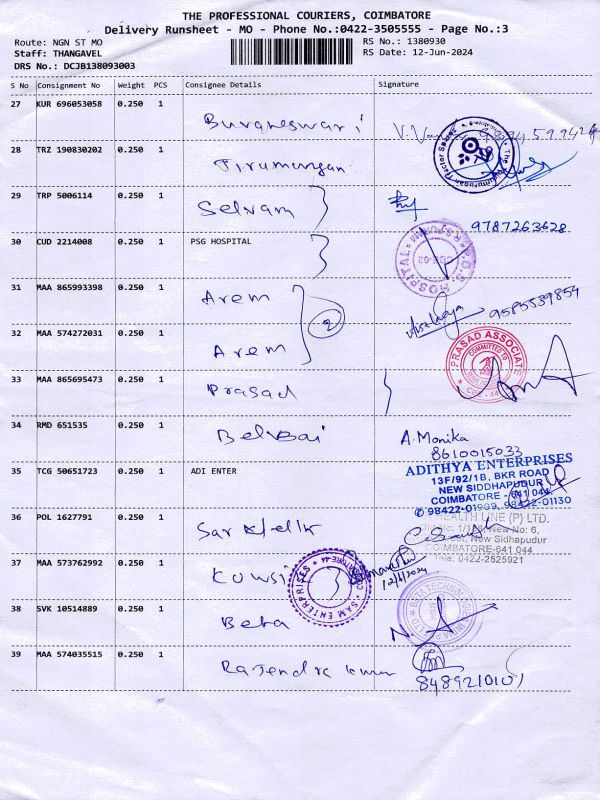 THE PROFESSIONAL COURIERS, COIMBATORE
Delivery Runsheet - MO - Phone No.:0422-3505555 - Page No.:3
Route: NGN ST MO
RS No.: 1380930
Staff: THANGAVEL
RS Date: 12-Jun-2024
DRS No.: DCJB138093003
S No Consignment No Weight PCS Consignee Details Signature
27 KUR 696053058 0.250 1 Buvaneswari
28 TRZ 190830202 0.250 1 Tirumurugan
29 TRP 5006114 0.250 1 Selvam
9787263628
30 CUD 2214008 0.250 1 PSG HOSPITAL
31 MAA 865993398 0.250 1 Arem 2
9585539854
32 MAA 574272031 0.250 1 Arem
PRASAD ASSOCIATE
COMMITTED TO
33 MAA 865695473 0.250 1 Prasad
34 RMD 651535 0.250 1 A. Monika
8610015033
35 TCG 50651723 0.250 1 ADI ENTER
ADITHYA ENTERPRISES
13F/92/1B, BKR ROAD
NEW SIDDHAPUDUR
COIMBATORE - 641 044.
✆ 98422-01999, 98422-01130
36 POL 1627791 0.250 1
HEALTH LINE (P) LTD.
New No: 6,
New Sidhapudur
COIMBATORE-641 044
Tele: 0422-2525921
37 MAA 573762992 0.250 1 Kowsi
SAM ENTERPRISES
12/6/2024
38 SVK 10514889 0.250 1 Beta
BETA TECHNOLOGIES
39 MAA 574035515 0.250 1 Rajendra kumar
8489210101